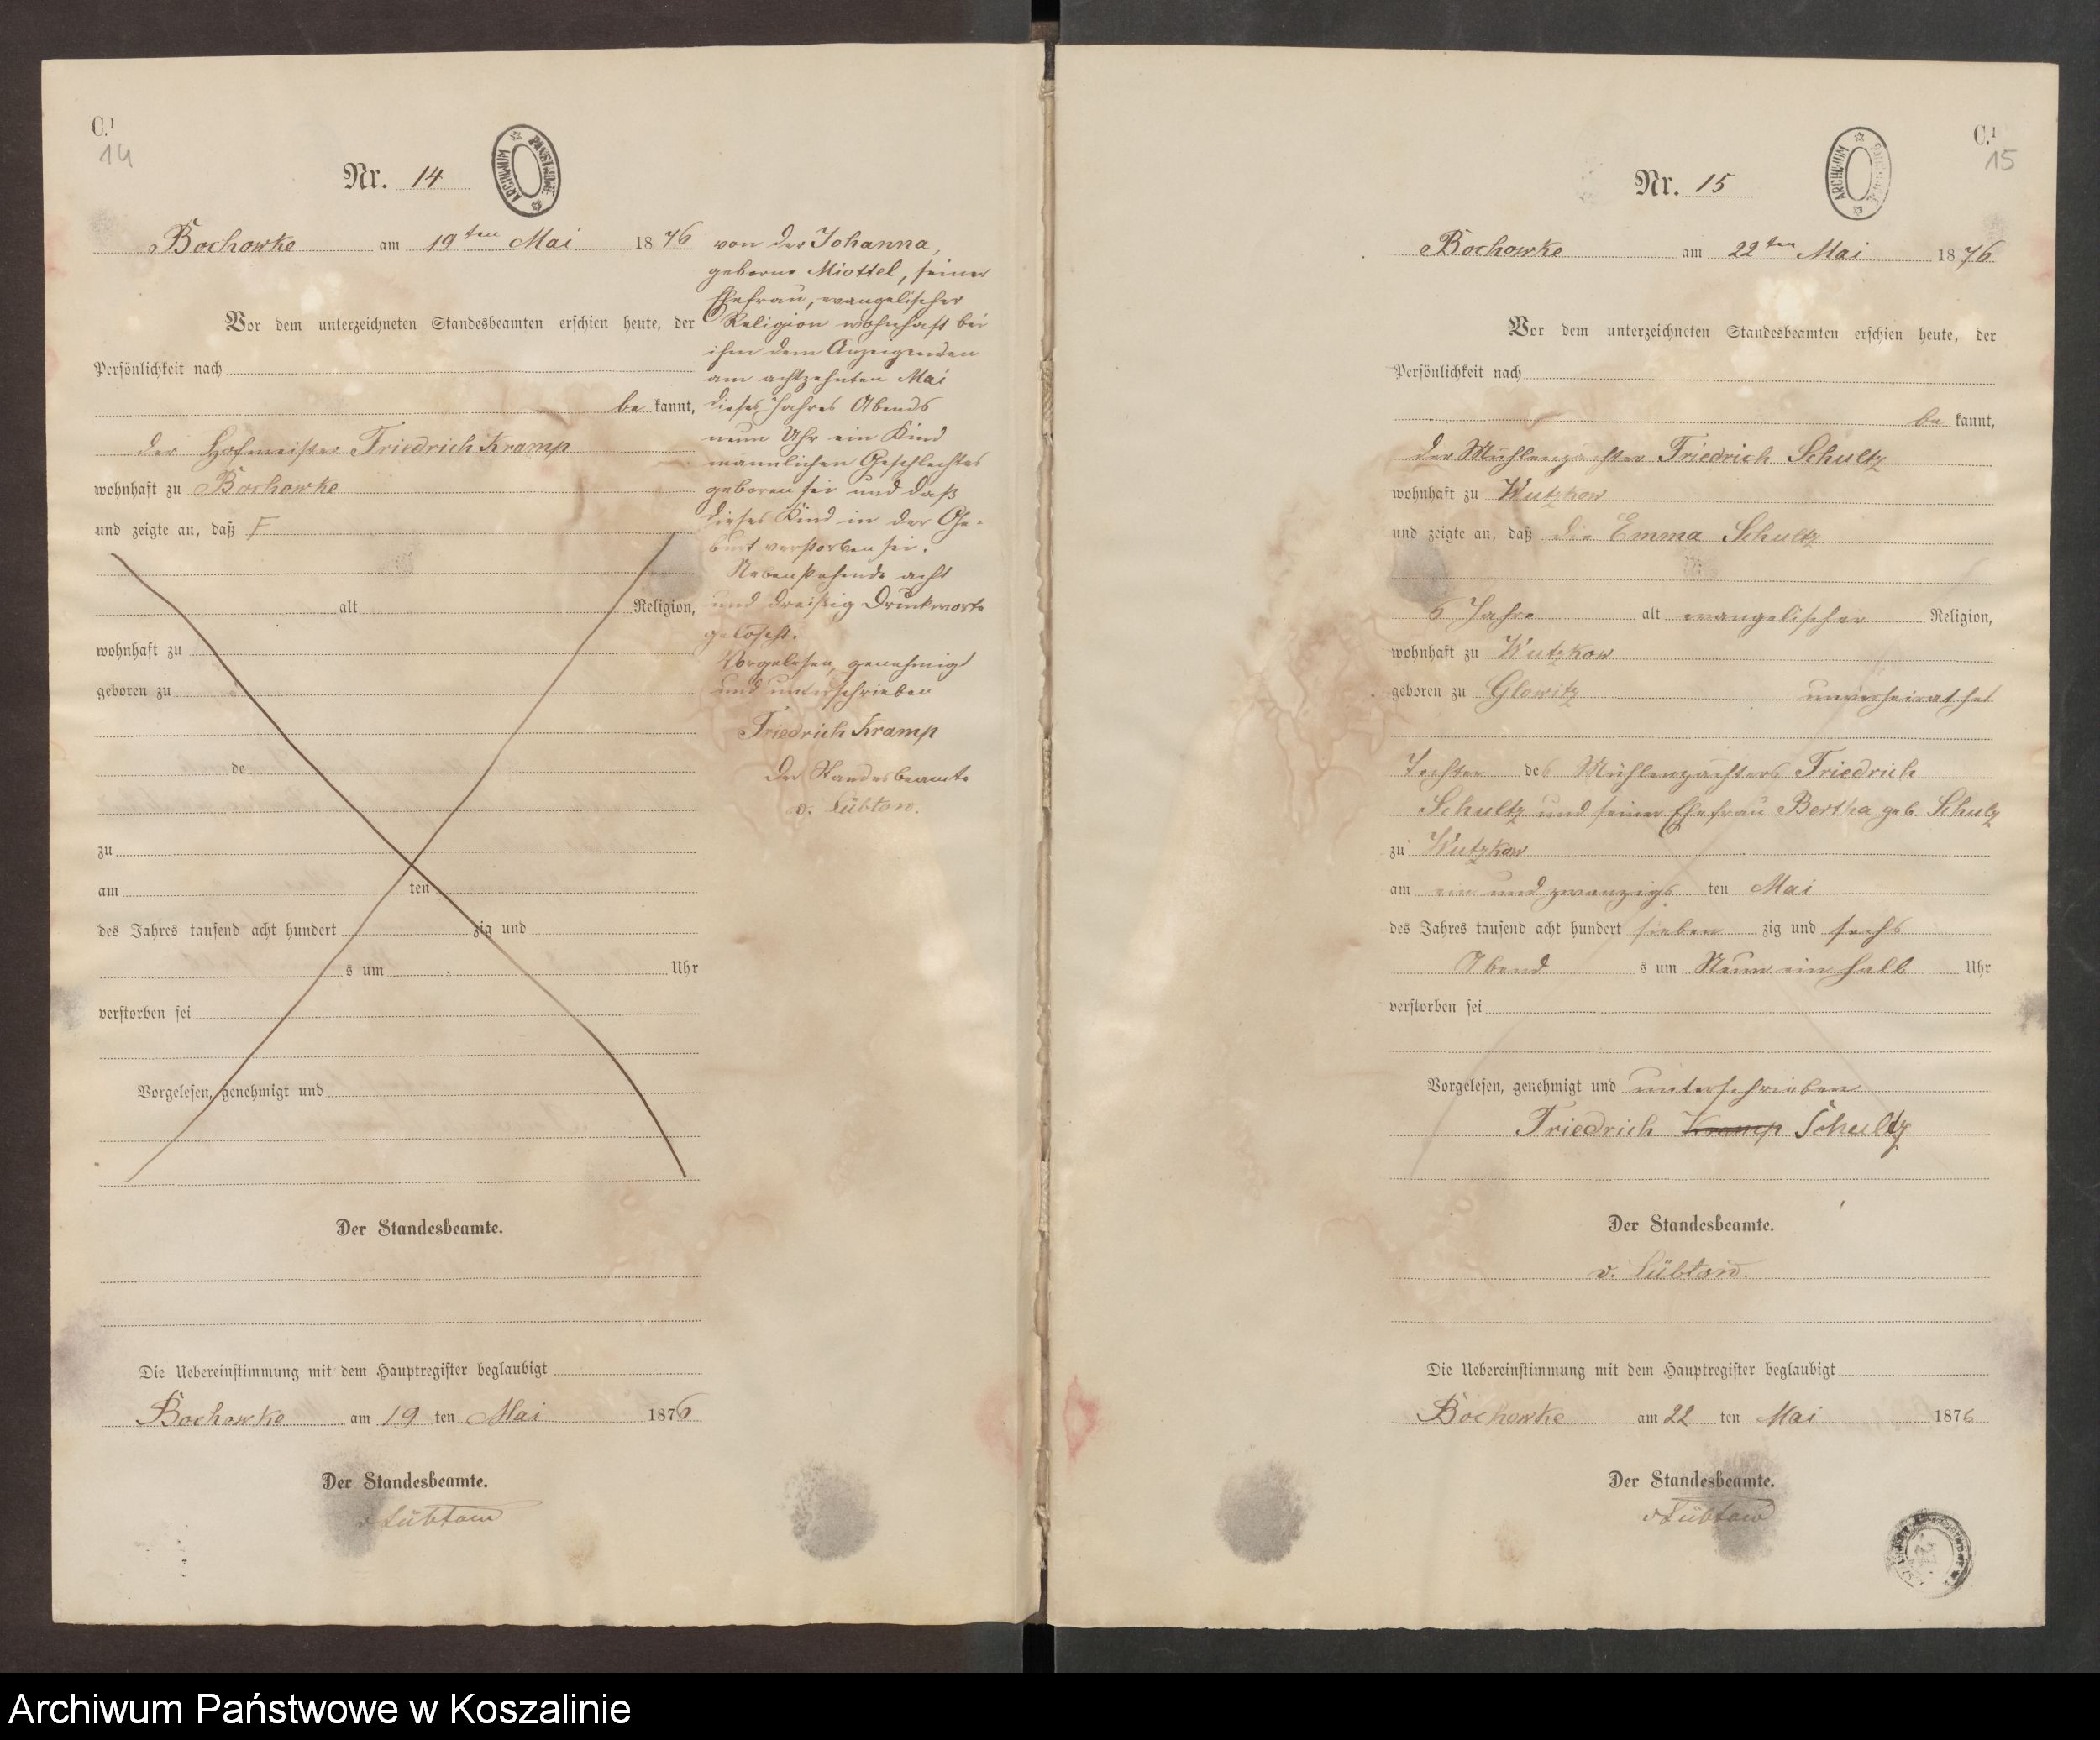 C.¹
14
Nr. 14
ARCHIWUM PAŃSTWOWE
Bochowke am 19ten Mai 1876
Vor dem unterzeichneten Standesbeamten erschien heute, der
Persönlichkeit nach
be kannt,
der Hofmeister Friedrich Kramp
wohnhaft zu Bochowke
und zeigte an, daß
alt Religion,
wohnhaft zu
geboren zu
de
zu
am ten
des Jahres tausend acht hundert zig und
s um Uhr
verstorben sei
Vorgelesen, genehmigt und
Der Standesbeamte.
Die Uebereinstimmung mit dem Hauptregister beglaubigt
Bochowke am 19 ten Mai 1876
Der Standesbeamte.
v Lübtow
von der Johanna,
geborne Miottel, seiner
Ehefrau, evangelischer
Religion wohnhaft bei
ihm dem Anzeigenden
am achtzehnten Mai
dieses Jahres Abends
neun Uhr ein Kind
männlichen Geschlechtes
geboren sei und daß
dieses Kind in der Ge-
burt verstorben sei.
Nebenstehende acht
und dreißig Druckworte
gelöscht.
Vorgelesen, genehmigt
und unterschrieben
Friedrich Kramp
Der Standesbeamte
v. Lübtow.
C.¹
15
Nr. 15
ARCHIWUM PAŃSTWOWE
Bochowke am 22ten Mai 1876
Vor dem unterzeichneten Standesbeamten erschien heute, der
Persönlichkeit nach
be kannt,
der Mühlenpächter Friedrich Schultz
wohnhaft zu Wutzkow
und zeigte an, daß die Emma Schultz
6 Jahre alt evangelischer Religion,
wohnhaft zu Wutzkow
geboren zu Glowitz unverheirathet
Tochter des Mühlenpächters Friedrich
Schultz und seiner Ehefrau Bertha geb. Schulz
zu Wutzkow
am ein und zwanzigs ten Mai
des Jahres tausend acht hundert sieben zig und sechs
Abend s um Neun ein halb Uhr
verstorben sei
Vorgelesen, genehmigt und unterschrieben
Friedrich Kramp Schultz
Der Standesbeamte.
v. Lübtow.
Die Uebereinstimmung mit dem Hauptregister beglaubigt
Bochowke am 22 ten Mai 1876
Der Standesbeamte.
v Lübtow
Archiwum Państwowe w Koszalinie